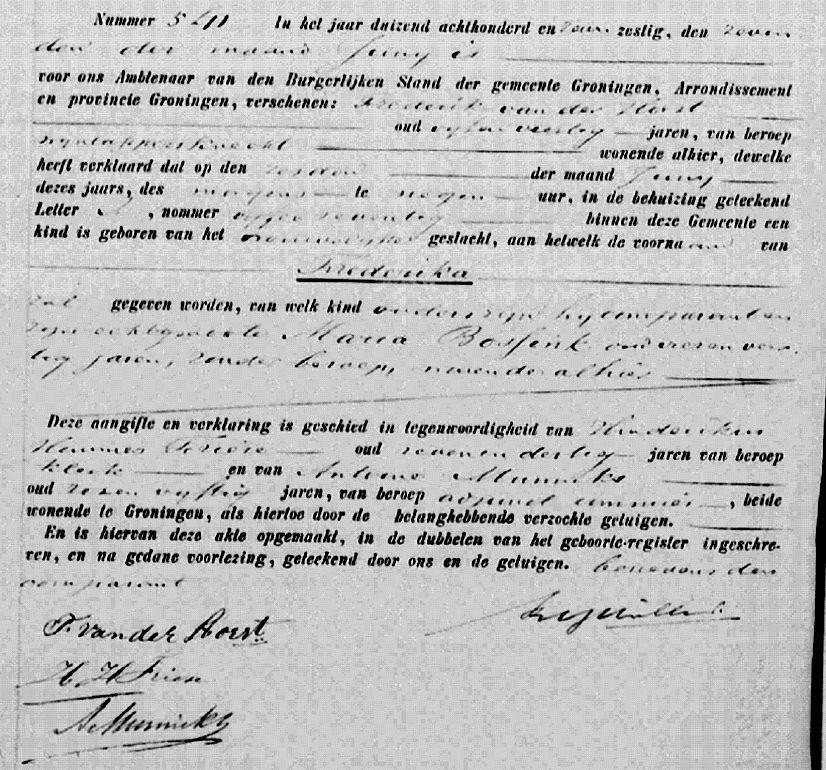 Nummer 541 In het jaar duizend achthonderd en zestig, den zeven
den der maand Juny is
voor ons Ambtenaar van den Burgerlijken Stand der gemeente Groningen, Arrondissement
en provincie Groningen, verschenen: Frederik van der Horst
oud vyf en veertig jaren, van beroep
wonende alhier, dewelke
heeft verklaard dat op den zesden der maand Juny
dezes jaars, des morgens te negen uur, in de behuizing geteekend
Letter , nommer zeventig binnen deze Gemeente een
kind is geboren van het vrouwelyke geslacht, aan hetwelk de voornaam van
Frederika
zal gegeven worden, van welk kind ouders zyn hy comparant en
zyne echtgenoote Maria Bossink oud zeven veer-
tig jaren, zonder beroep, wonende alhier
Deze aangifte en verklaring is geschied in tegenwoordigheid van Hinderikus
Hemmes oud zeven en dertig jaren van beroep
klerk en van Antonie Munniks
oud zes en vyftig jaren, van beroep adjunct commies, beide
wonende te Groningen, als hiertoe door de belanghebbende verzochte getuigen.
En is hiervan deze akte opgemaakt, in de dubbelen van het geboorte-register ingeschre-
ven, en na gedane voorlezing, geteekend door ons en de getuigen. benevens den
comparant
F. van der Horst
H H
A Munniks